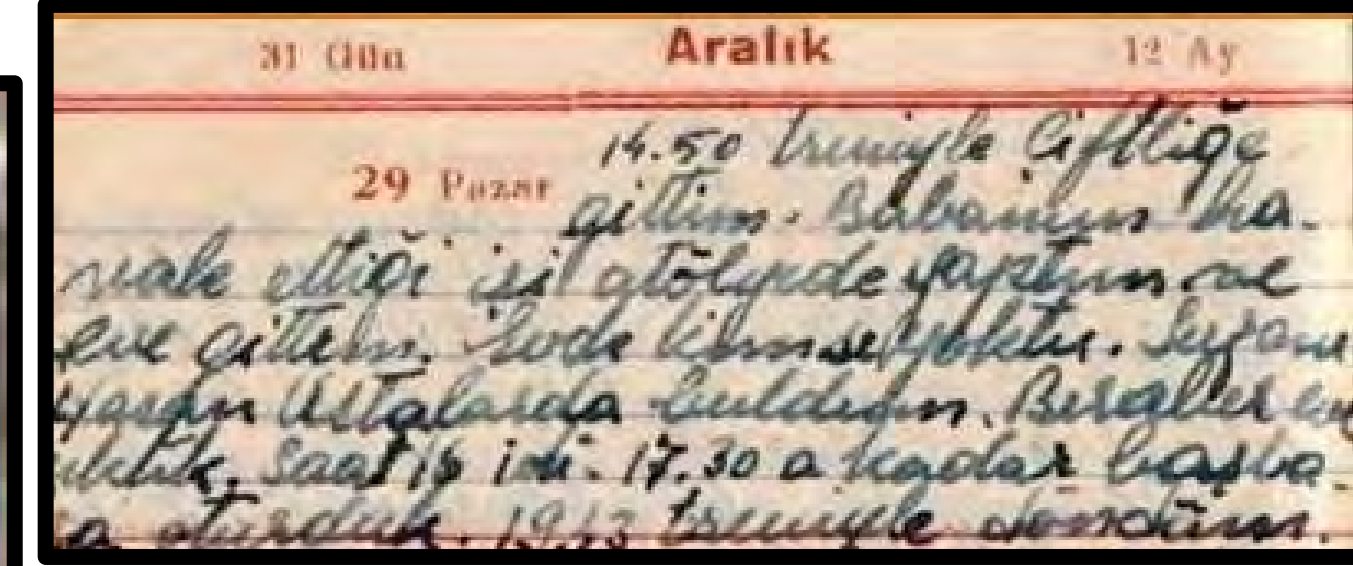 31 Gün Aralık 12 Ay
29 Pazar
14.50 treniyle Çiftliğe
gittim. Babamın ha-
vale ettiği işi atölyede yaptım ve
eve gittim. Evde kimse yoktu.
Hasan Ustalarda buldum. Beraber
Saat 16 idi. 17.30 a kadar başba-
oturduk. 19,13 treniyle döndüm.